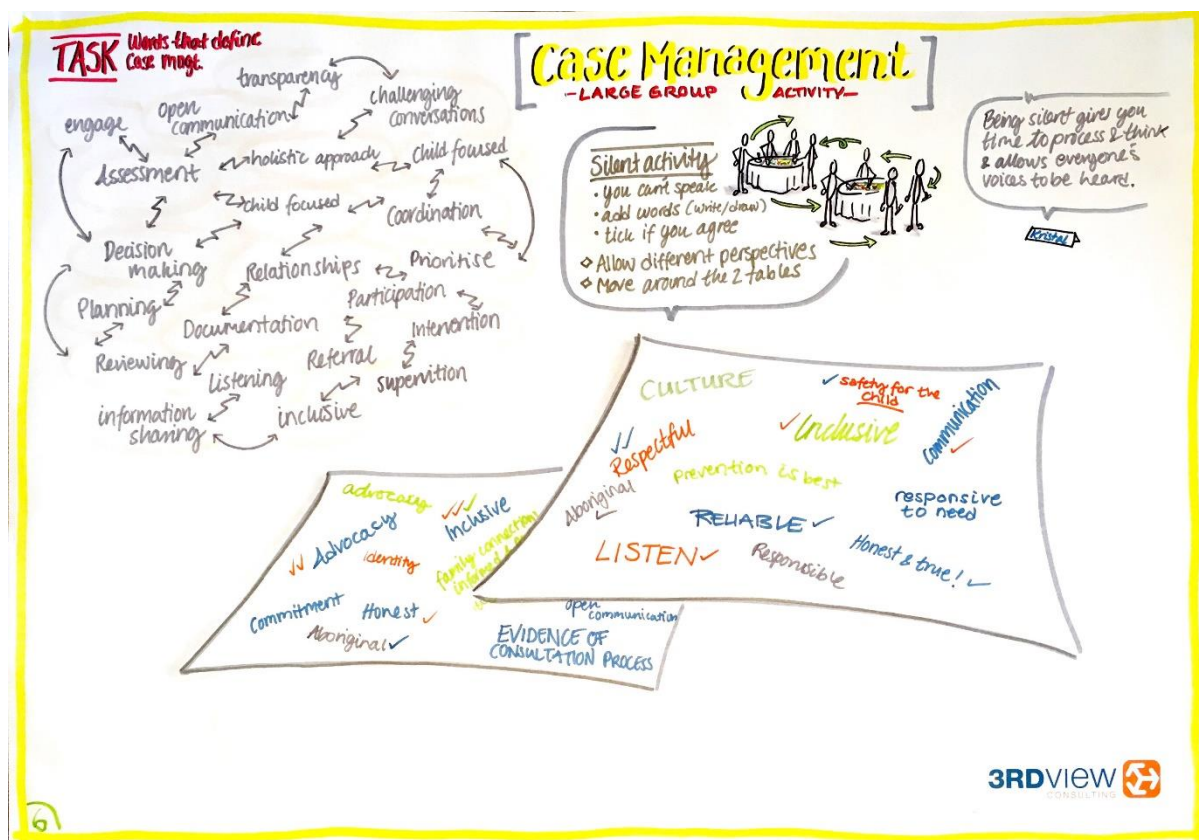 TASK Words that define
Case mngt.
transparency
open
communication
challenging
conversations
engage
Assessment
holistic approach
Child focused
child focused
Coordination
Decision
making
Relationships
Prioritise
Planning
Participation
Documentation
Intervention
Reviewing
Referral
Listening
supervition
information
sharing
inclusive
Case Management
-LARGE GROUP ACTIVITY-
Silent activity
• you can't speak
• add words (write/draw)
• tick if you agree
◇ Allow different perspectives
◇ Move around the 2 tables
Being silent gives you
time to process & think
& allows everyone's
voices to be heard.
Kristal
CULTURE
✓ safety for the
child
Communication
✓
✓✓
Respectful
✓ Inclusive
Prevention is best
Aboriginal
✓
responsive
to need
RELIABLE ✓
LISTEN ✓
Responsible
Honest & true! ✓
advocacy
✓✓✓
Inclusive
✓✓ Advocacy
identity
family connection
informed
Commitment
Honest ✓
Aboriginal ✓
open
communication
EVIDENCE OF
CONSULTATION PROCESS
3RDVIEW
CONSULTING
6